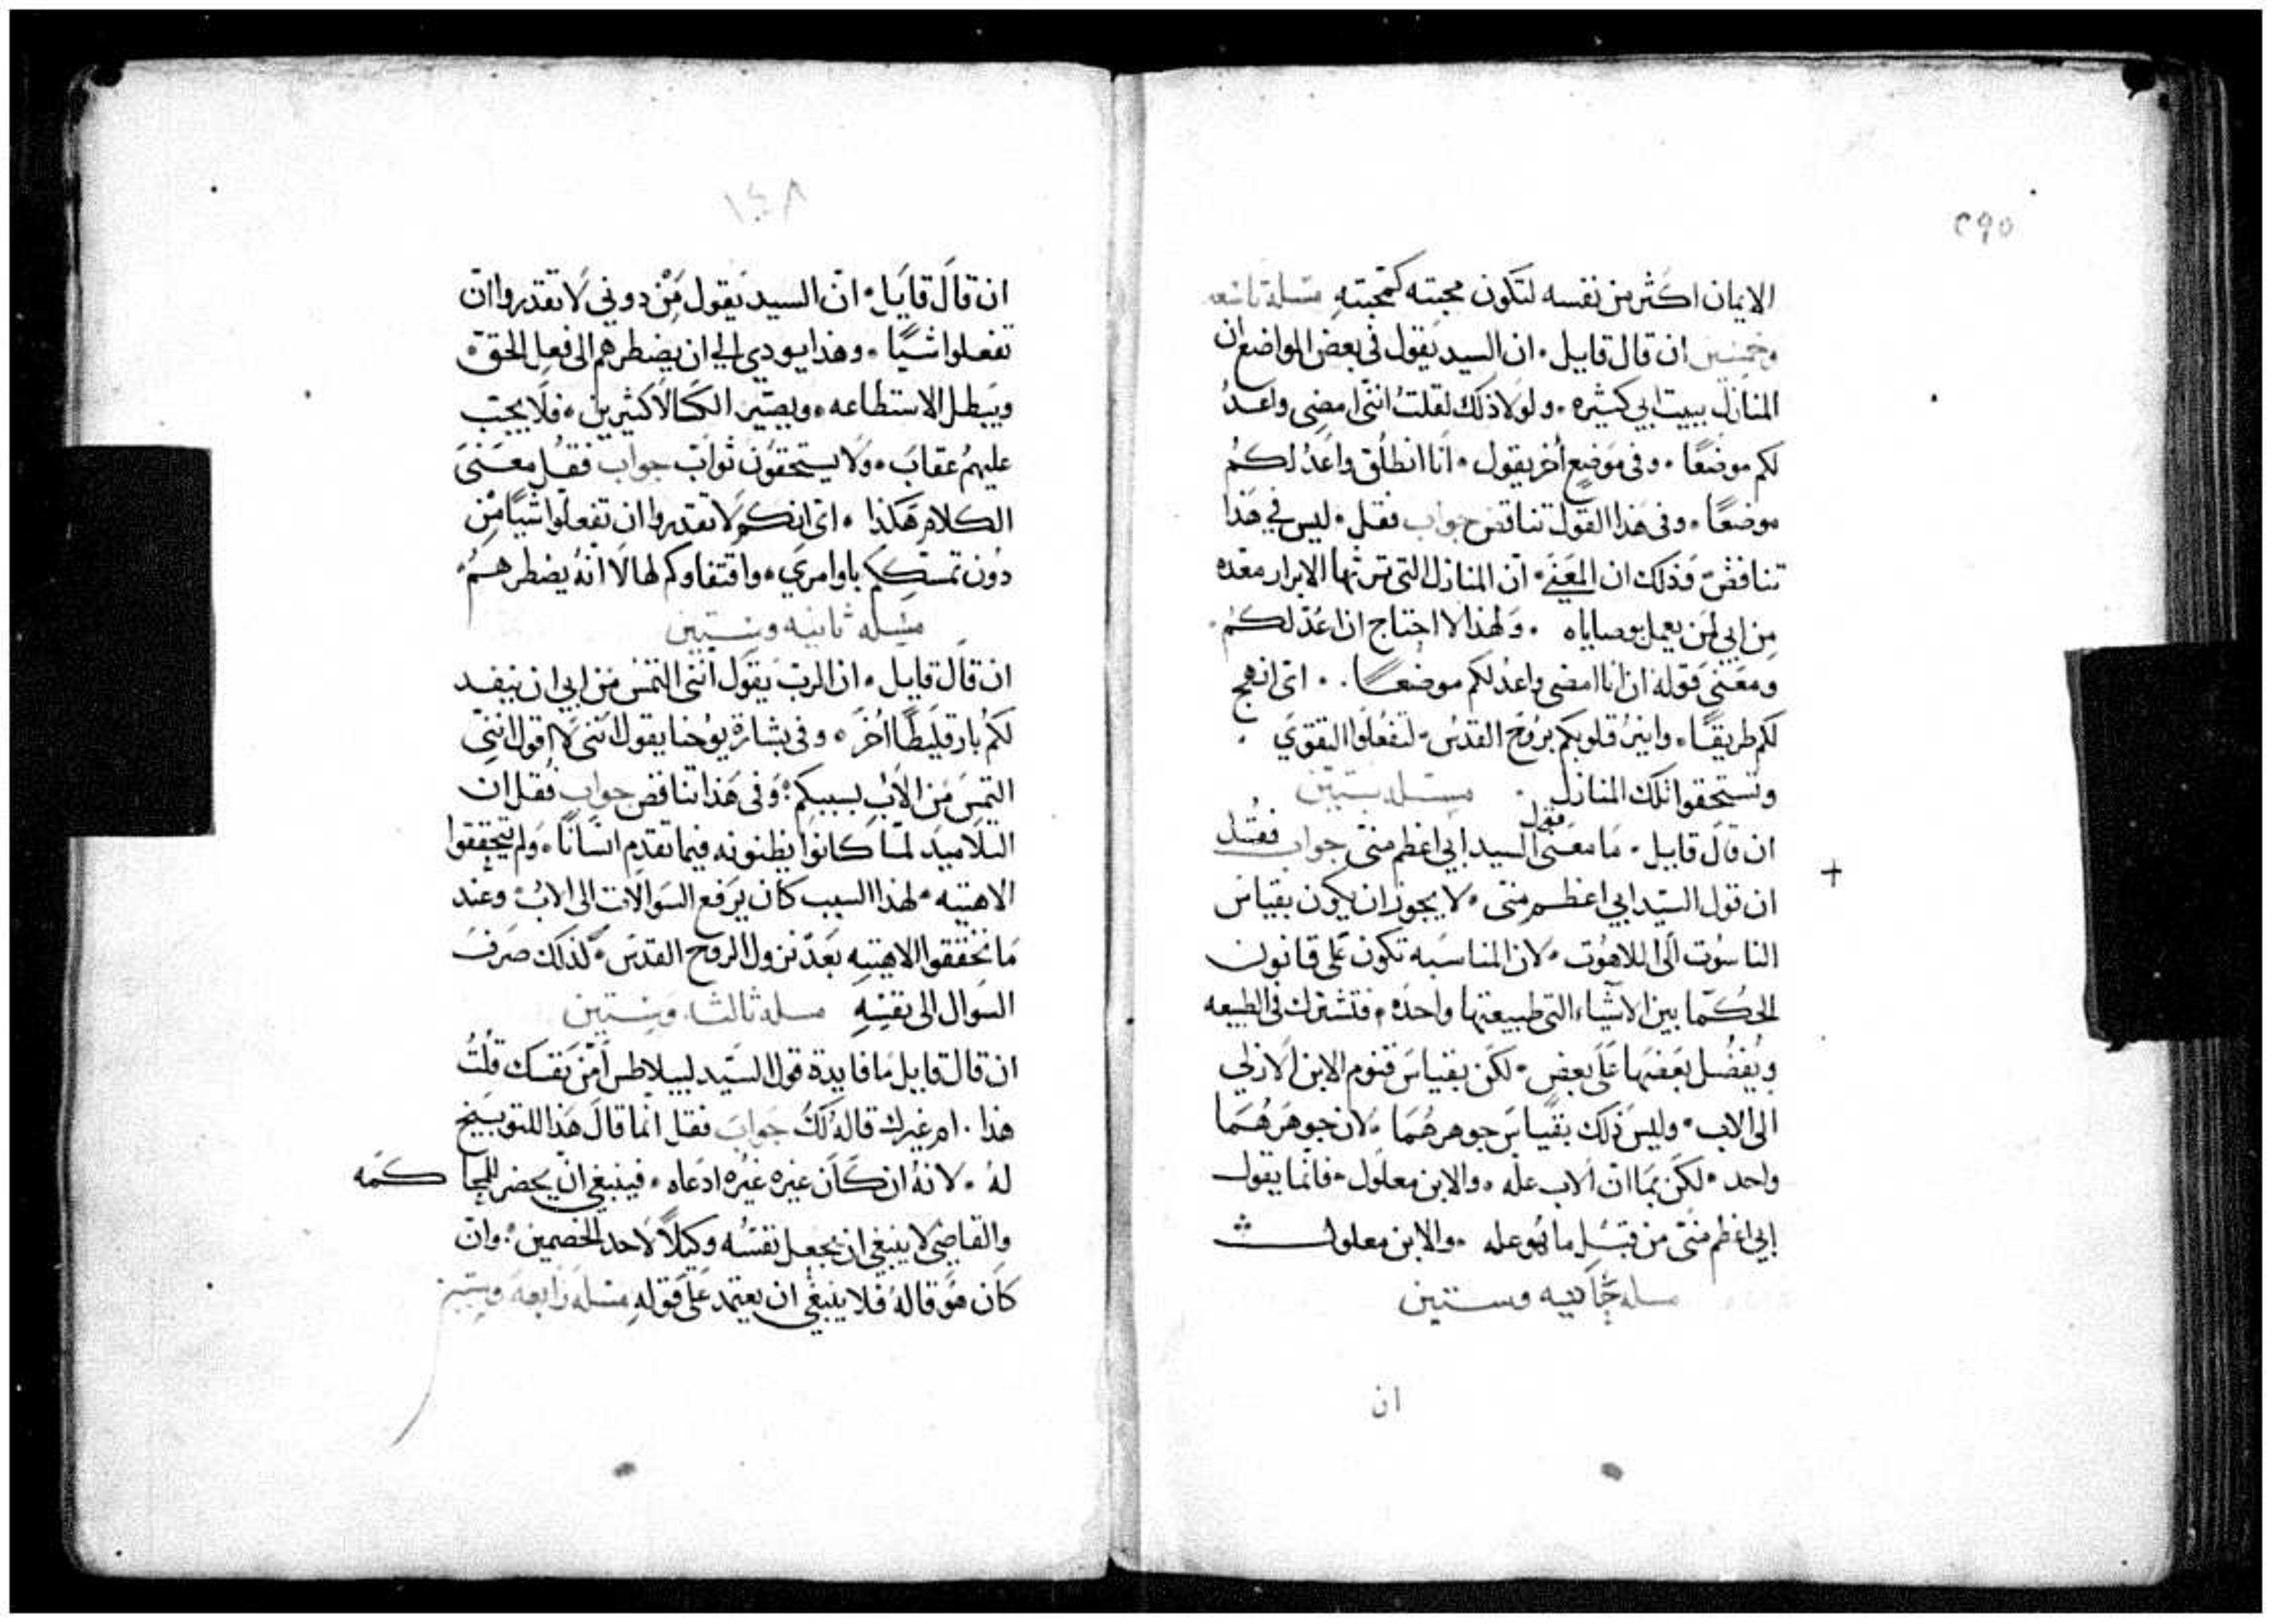 ٢٩٥
الايمان اكثر من نفسه لتكون محبته كمحبته مسله تاسعه
وخمسين ان قال قايل • ان السيد يقول في بعض المواضع ان
المنازل ببيت ابي كثيره • ولولا ذلك لقلت انني امضي واعد
لكم موضعًا • وفي موضعٍ اخر يقول • انا انطلق واعد لكم
موضعًا • وفي هذا القول تناقض جواب فقل • ليس في هذا
تناقض وذلك ان المعنى • ان المنازل التي ترثها الابرار معده
من ابي لمن يعمل بوصاياه • ولهذا لا احتاج ان اعد لكم •
ومعنى قوله ان انا امضي واعد لكم موضعًا • اى انهج
لكم طريقًا • وانير قلوبكم بروح القدس • لتفعلوا التقوي •
وتستحقوا تلك المنازل • مسله ستين
ان قال قايل • ما معنى قول السيد ابي اعظم منى جواب فقل
+
ان قول السيد ابي اعظم منى • لا يجوز ان يكون بقياس
الناسوت الى اللاهوت • لان المناسبه تكون على قانون
الحكما بين الاشياء التي طبيعتها واحده • فتشترك في الطبيعه
ويفضل بعضها على بعض • لكن بقياس قنوم الابن الازلي
الى الاب • وليس ذلك بقياس جوهرهما • لان جوهرهما
واحد • لكن بما ان الاب عله • والابن معلول • فانما يقول
ابي اعظم منى من قبل ما هو عله • والابن معلول
مسله حاديه وستين
ان
١٤٨
ان قال قايل • ان السيد يقول من دوني لا تقدروا ان
تفعلوا شيًا • وهذا يودي الي ان يضطرهم الى فعل الحق •
ويبطل الاستطاعه • ويصير الكالاكثيرين • فلا يجب
عليهم عقاب • ولا يستحقون ثواب جواب فقل معنى
الكلام هكذا • اى انكم لا تقدروا ان تفعلوا شيًا من
دون تمسككم باوامري • واقتفاوكم لها لا انه يضطرهم •
مسله ثانيه وستين
ان قال قايل • ان الرب يقول انني التمس من ابي ان ينفد
لكم بارقليطًا اخر • وفي بشارة يوحنا يقول انني لا اقول انني
التمس من الاب بسببكم • وفي هذا تناقض جواب فقل ان
التلاميد لما كانوا يظنونه فيما تقدم انسانًا • ولم يتحققوا
الاهيته • لهذا السبب كان يرفع السوالات الى الاب • وعند
ما تحققوا الاهيته بعد نزول الروح القدس • لذلك صرف
السوال الى نفسه مسله ثالثه وستين
ان قال قايل ما فايدة قول السيد لبيلاطس امن نفسك قلت
هذا • ام غيرك قاله لك جواب فقل انما قال هذا للتوبيخ
له • لانه ان كان غيره غيره ادعاه • فينبغي ان يحضر للمحا كمه
والقاضي لا ينبغي ان يجعل نفسه وكيلًا لاحد الخصمين • وان
كان هو قاله فلا ينبغي ان يعتمد على قوله مسله رابعه وستين